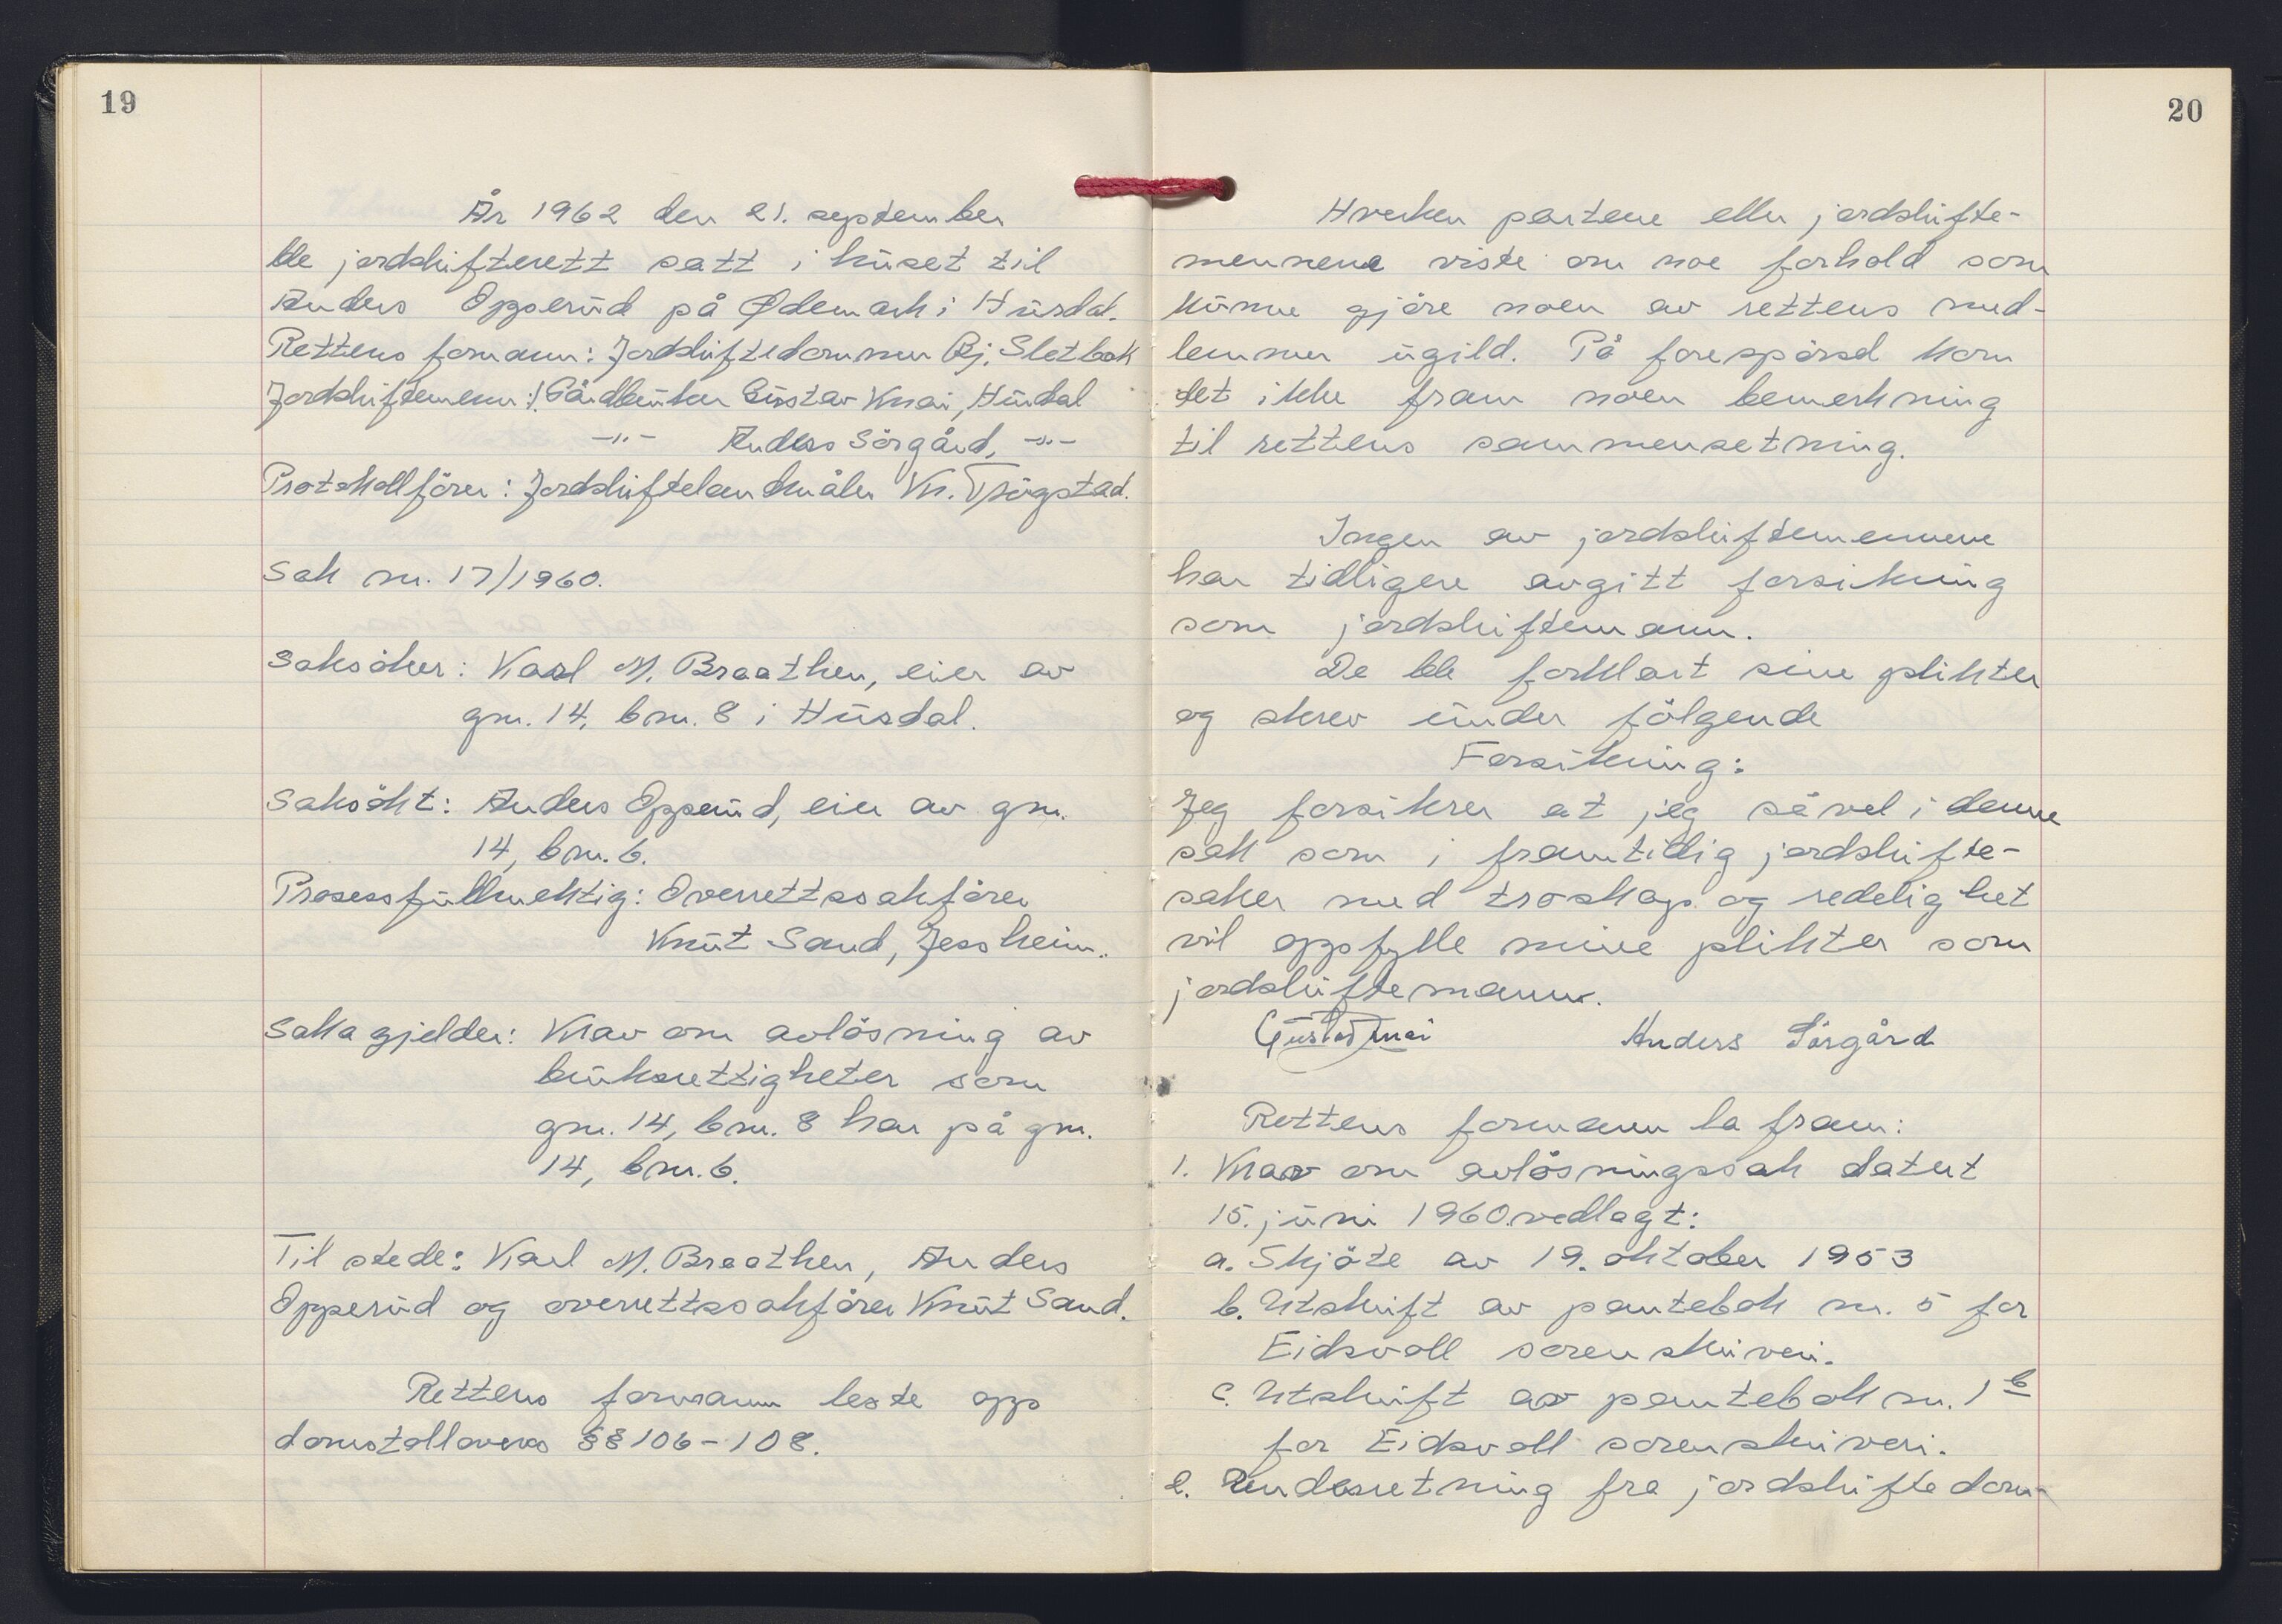 19
År 1962 den 21. september
ble jordskifterett satt i huset til
Anders Opperud på Ødemark i Hurdal.
Rettens formann: Jordskiftedommer Bj. Sletbak
Jordskiftemenn: Gårdbruker Gustav Knai, Hurdal
-"- Anders Sörgård, -"-
Protokollförer: Jordskiftelandmåler Kr. Trögstad.
Sak nr. 17/1960.
Saksöker: Karl M. Braathen, eier av
gnr. 14, bnr. 8 i Hurdal.
Saksökt: Anders Opperud, eier av gnr.
14, bnr. 6.
Prosessfullmektig: Overrettssakförer
Knut Sand, Jessheim.
Saka gjelder: Krav om avlösning av
bruksrettigheter som
gnr. 14, bnr. 8 har på gnr.
14, bnr. 6.
Til stede: Karl M. Braathen, Anders
Opperud og overrettssakförer Knut Sand.
Rettens formann leste opp
domstollovens §§ 106-108.
20
Hverken partene eller jordskifte-
mennene viste om noe forhold som
kunne gjöre noen av rettens med-
lemmer ugild. På forespörsel kom
det ikke fram noen bemerkning
til rettens sammensetning.
Ingen av jordskiftemennene
har tidligere avgitt forsikring
som jordskiftemann.
De ble forklart sine plikter
og skrev under fölgende
Forsikring:
Jeg forsikrer at jeg såvel i denne
sak som i framtidig jordskifte-
saker med troskap og redelighet
vil oppfylle mine plikter som
jordskiftemann.
Gustav Knai Anders Sörgård
Rettens formann la fram:
1. Krav om avlösningssak datert
15. juni 1960 vedlagt:
a. Skjöte av 19. oktober 1953
b. Utskrift av pantebok nr. 5 for
Eidsvoll sorenskriveri.
c. Utskrift av pantebok nr. 1b
for Eidsvoll sorenskriveri.
2. Underretning fra jordskiftedom-